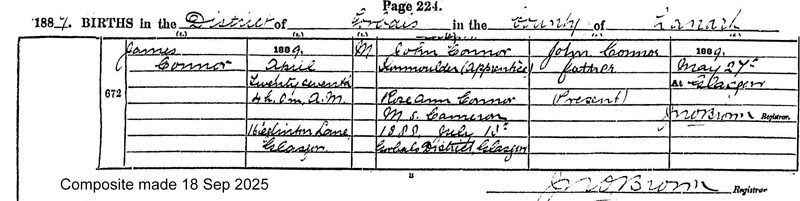 Page 224.
1889. BIRTHS in the District of Gorbals in the County of Lanark
James 1889. M John Connor John Connor 1889.
Connor April Ironmoulder (Apprentice) father May 27th
672 Twenty seventh At Glasgow
4 h. 0 m. A.M. Rose Ann Connor (Present)
M.S. Cameron Jno Brown Registrar.
16 Eglinton Lane 1888, July 13th
Glasgow Gorbals District, Glasgow
Composite made 18 Sep 2025
Jno Brown Registrar